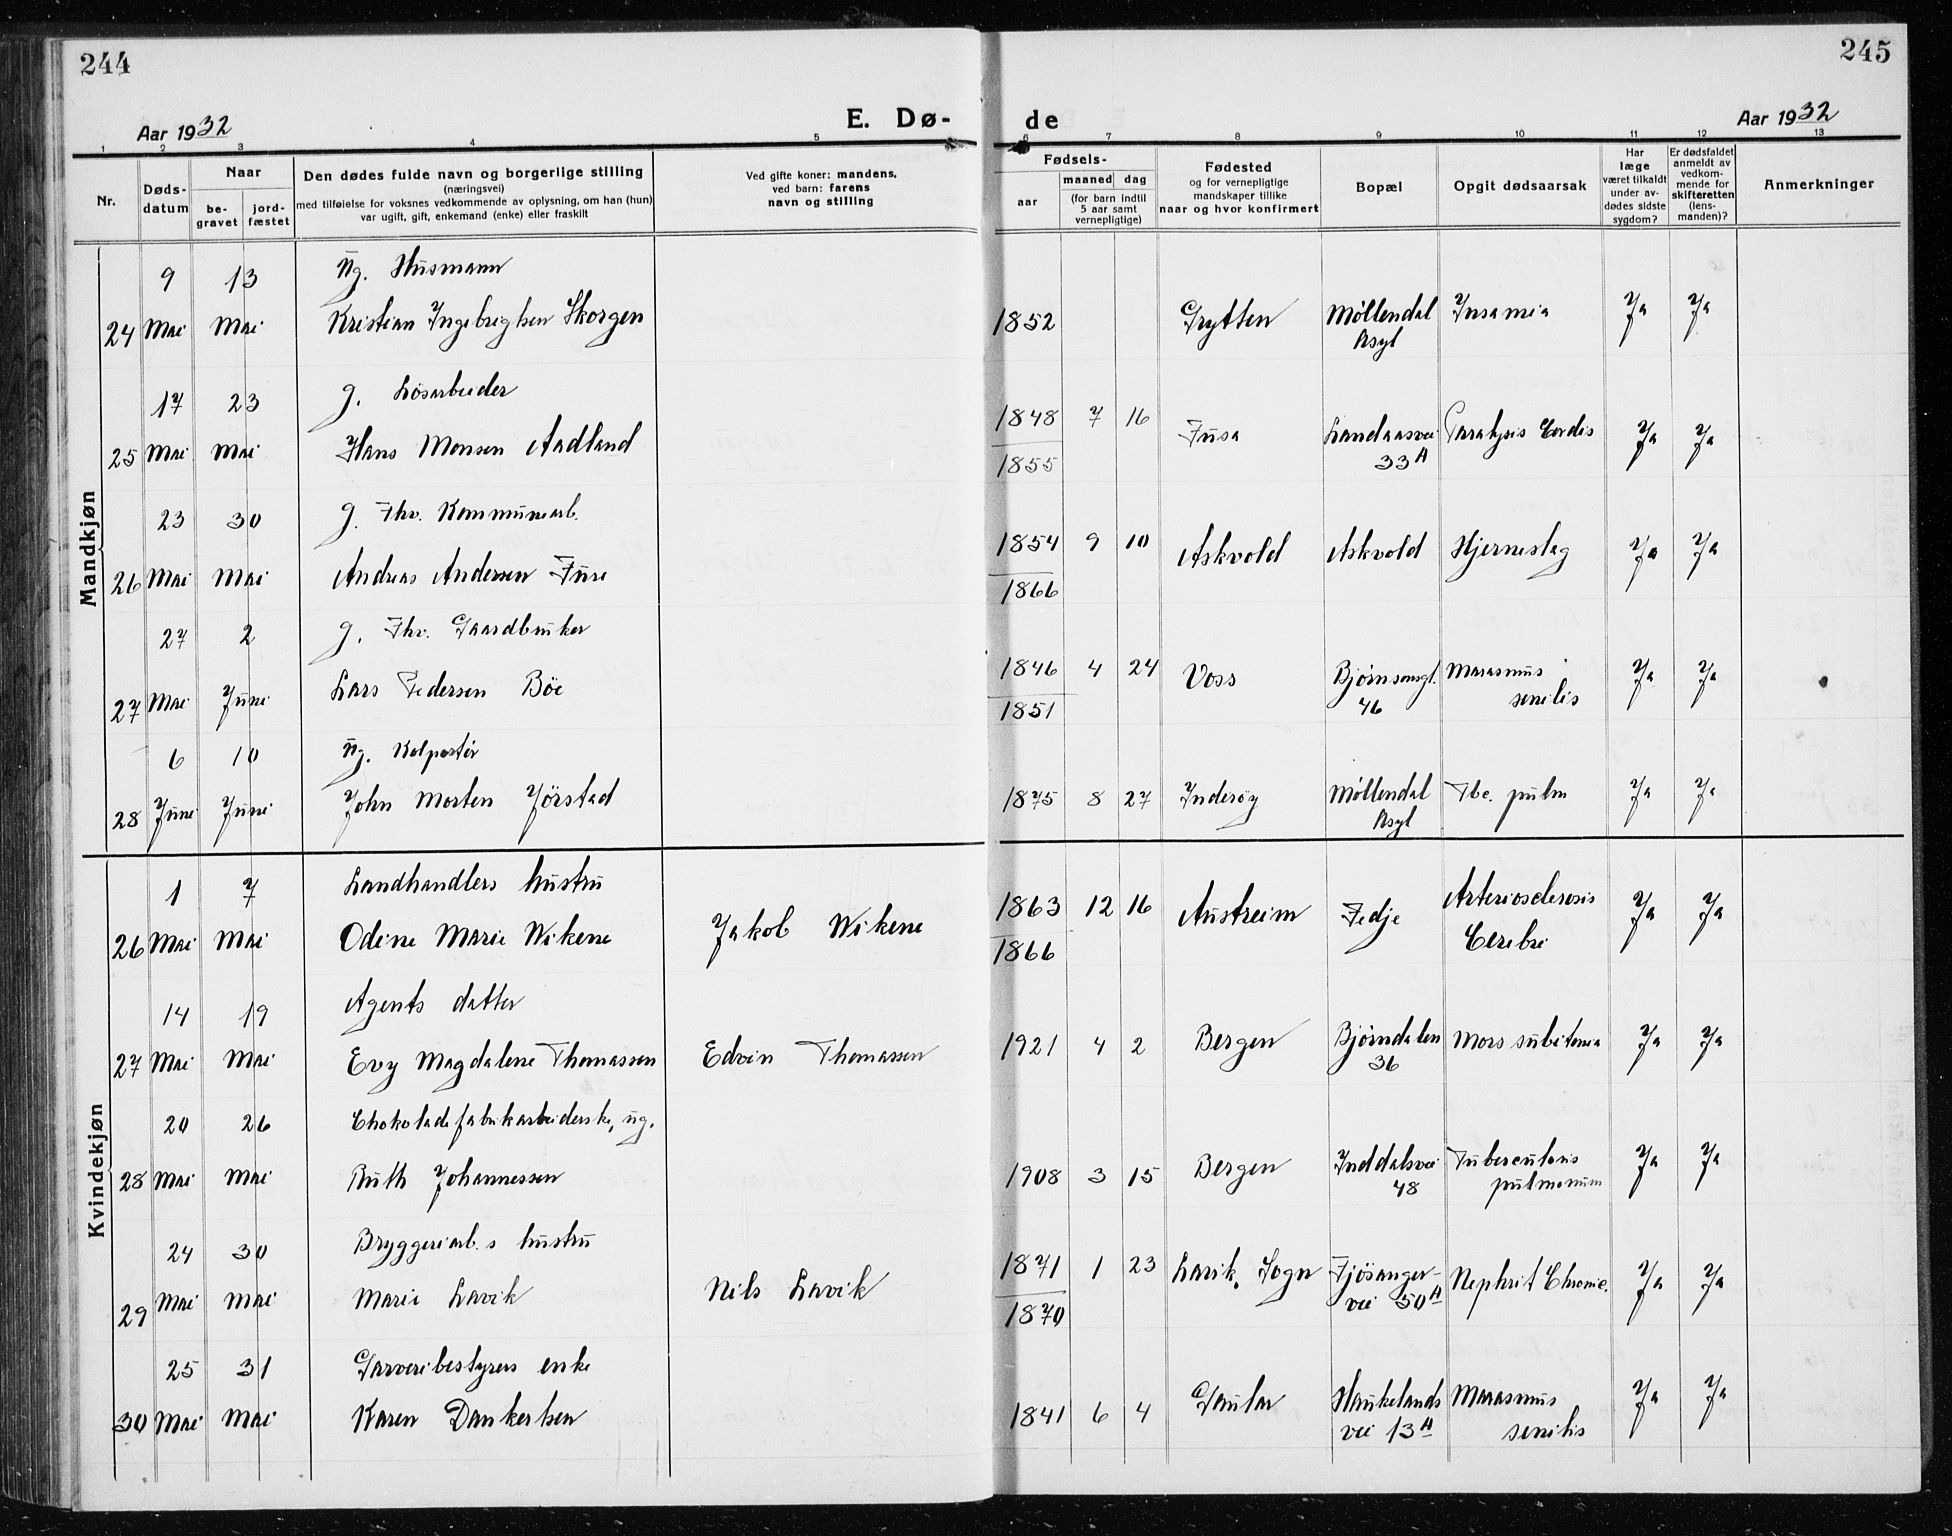 244
245
Aar 1932
E. Dø-
de
Aar 1932
1 2 3 4 5 6 7 8 9 10 11 12 13
Nr.
Døds-
datum
Naar
be-
gravet
jord-
fæstet
Den dødes fulde navn og borgerlige stilling
(næringsvei)
med tilføielse for voksnes vedkommende av oplysning, om han (hun)
var ugift, gift, enkemand (enke) eller fraskilt
Ved gifte koner: mandens,
ved barn: farens
navn og stilling
Fødsels-
aar
maaned dag
(for barn indtil
5 aar samt
vernepligtige)
Fødested
og for vernepligtige
mandskaper tillike
naar og hvor konfirmert
Bopæl
Opgit dødsaarsak
Har
læge
været tilkaldt
under av-
dødes sidste
sygdom?
Er dødsfaldet
anmeldt av
vedkom-
mende for
skifteretten
(lens-
manden)?
Anmerkninger
Mandkjøn
9 13 ug. Husmann
24 Mai Mai Kristian Ingebrigtsen Skorgen 1852 Grytten Møllendal Insania Ja Ja
Asyl
17 23 g. Løsarbeider
1848 7 16
25 Mai Mai Hans Monsen Aadland Fusa Landaasvei Paralysis Cordis Ja Ja
1855 33A
23 30 g. Fhv. Kommunearb.
1854 9 10 Askvold Askvold Hjerneslag Ja Ja
26 Mai Mai Andreas Andersen Fure
1866
27 2 g. Fhv. Gaardbruker
1846 4 24 Voss Bjørnsonsgt. Marasmus Ja Ja
27 Mai Juni Lars Pedersen Böe
1851 46 senilis
6 10 ug. Kolportör
28 Juni Juni John Morten Jörstad 1875 8 27 Inderøy Møllendal Tbc. pulm Ja Ja
Asyl
Kvindekjøn
1 7 Landhandlers hustru
1863 12 16 Austreim Fedje Arteriosclerosis Ja Ja
26 Mai Mai Odine Marie Wikene Jakob Wikene
1866 Cerebri
14 19 Agents datter
27 Mai Mai Evy Magdalene Thomassen Edvin Thomassen 1921 4 2 Bergen Bjørndalen Mors subitanea Ja Ja
36
20 26 Chokoladefabrikarbeiderske, ug.
28 Mai Mai Ruth Johannessen 1908 3 15 Bergen Inddalsvei Tuberculosis Ja Ja
48 pulmonum
24 30 Bryggeriarb.s hustru
1871 1 23 Lavik, Sogn Fjösanger- Nephrit Chronic. Ja Ja
29 Mai Mai Marie Lavik Nils Lavik
1870 vei 50A
25 31 Garveribestyrers enke
30 Mai Mai Karen Dankertsen 1841 6 4 Gaular Haukelands Marasmus Ja Ja
vei 13A senilis